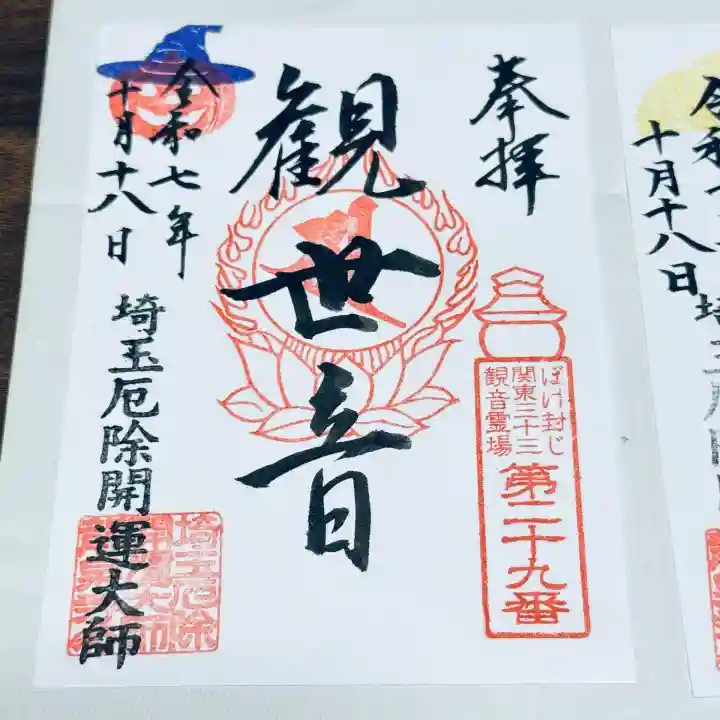 奉拝
ぼけ封じ
関東三十三
観音霊場
第二十九番
観世音
令和七年
十月十八日
埼玉厄除開運大師
埼玉厄除
十月十八日